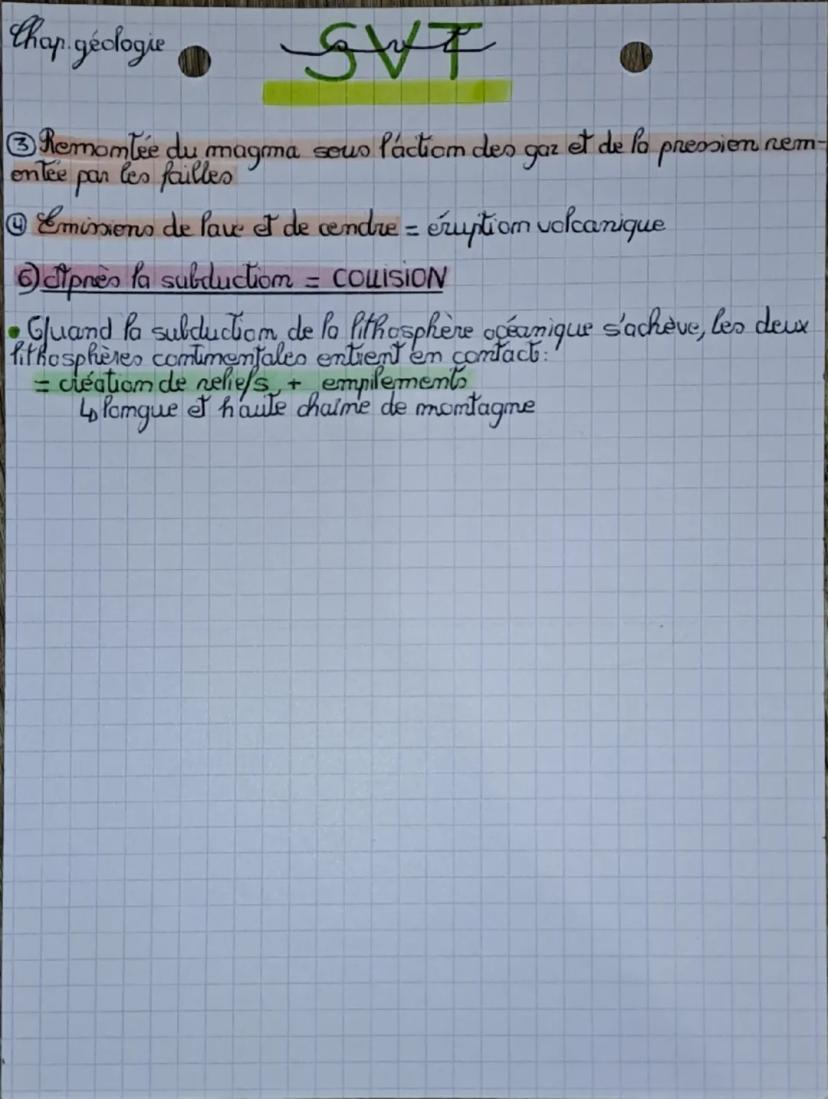 Chap. géologie
SVT
③ Remontée du magma sous l'action des gaz et de la pression rem-
entée par les failles
④ Emissions de lave et de cendre = éruption volcanique
6) Après la subduction = COLLISION
• Quand la subduction de la lithosphère océanique s'achève, les deux
lithosphères continentales entrent en contact:
= création de reliefs, + empilements
↳ longue et haute chaîne de montagne